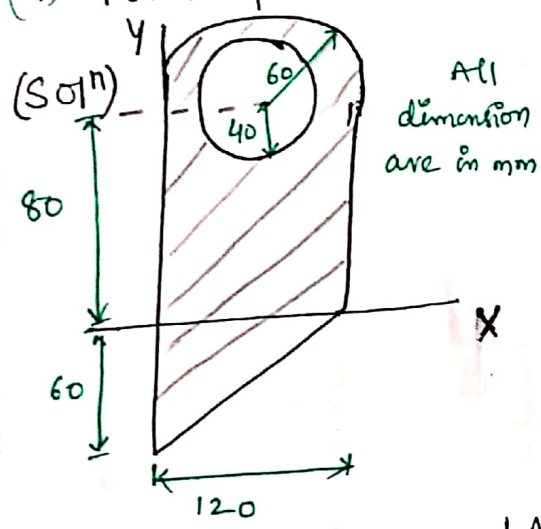 Y
(Solⁿ)
60
All
dimension
are in mm
40
80
X
60
120